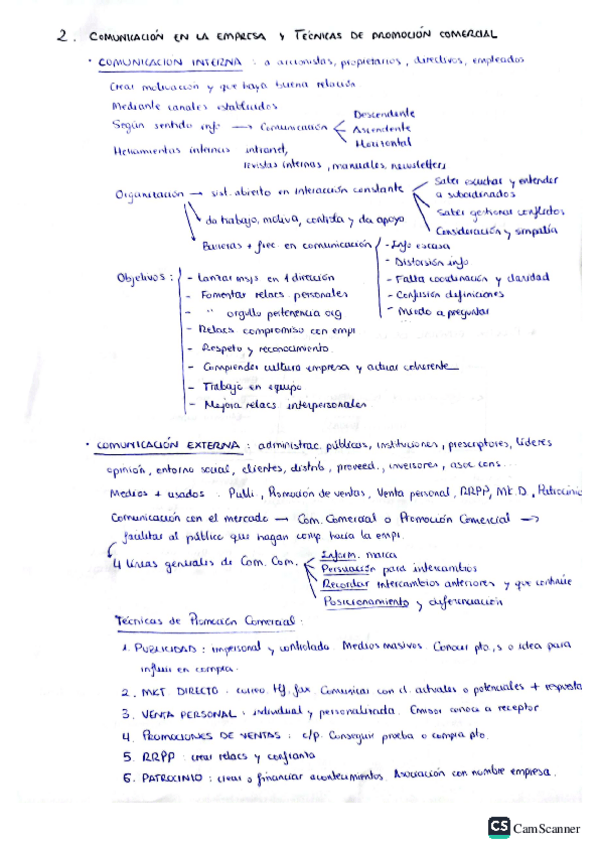 2. COMUNICACIÓN EN LA EMPRESA Y TÉCNICAS DE PROMOCIÓN COMERCIAL
· COMUNICACION INTERNA : a accionistas, propietarios, directivos, empleados
Crear motivación y que haya buena relación
Mediante canales establecidos
Según sentido info → Comunicación
Descendente
Ascendente
Horizontal
Herramientas internas intranet,
revistas internas, manuales, newsletters
Organización → sist. abierto en interacción constante
Saber escuchar y entender
a subordinados
Saber gestionar conflictos
Consideración y simpatía
da trabajo, motiva, controla y da apoyo
Barreras + frec. en comunicación
- Info escasa
- Distorsión info
- Falta coordinación y claridad
- Confusión definiciones
- Miedo a preguntar
Objetivos :
- Lanzar msjs en 1 dirección
- Fomentar relacs. personales
- " orgullo pertenencia org
- Relacs compromiso con empr
- Respeto y reconocimiento
- Comprender cultura empresa y actuar coherente
- Trabajo en equipo
- Mejora relacs interpersonales
· COMUNICACIÓN EXTERNA : administrac. públicas, instituciones, prescriptores, líderes
opinión, entorno social, clientes, distrib, proveed., inversores, asoc cons...
Medios + usados . Publi, Promoción de ventas, Venta personal, RRPP, Mk.D, Patrocinio
Comunicación con el mercado → Com. Comercial o Promoción Comercial →
facilitar al público que hagan comp. hacia la empr.
4 líneas generales de Com. Com.
Inform. marca
Persuación para intercambios
Recordar intercambios anteriores y que continúe
Posicionamiento y diferenciación
Técnicas de Promoción Comercial :
1. PUBLICIDAD : impersonal y controlado. Medios masivos. Conocer pto., s o idea para
influir en compra.
2. MKT DIRECTO . correo, tlf, fax. Comunicar con cl. actuales o potenciales + respuesta
3. VENTA PERSONAL : individual y personalizada. Emisor conoce a receptor
4. PROMOCIONES DE VENTAS : c/p. Conseguir prueba o compra pto.
5. RRPP : crear relacs y confianza
6. PATROCINIO : crear o financiar acontecimientos. Asociación con nombre empresa.
CS CamScanner